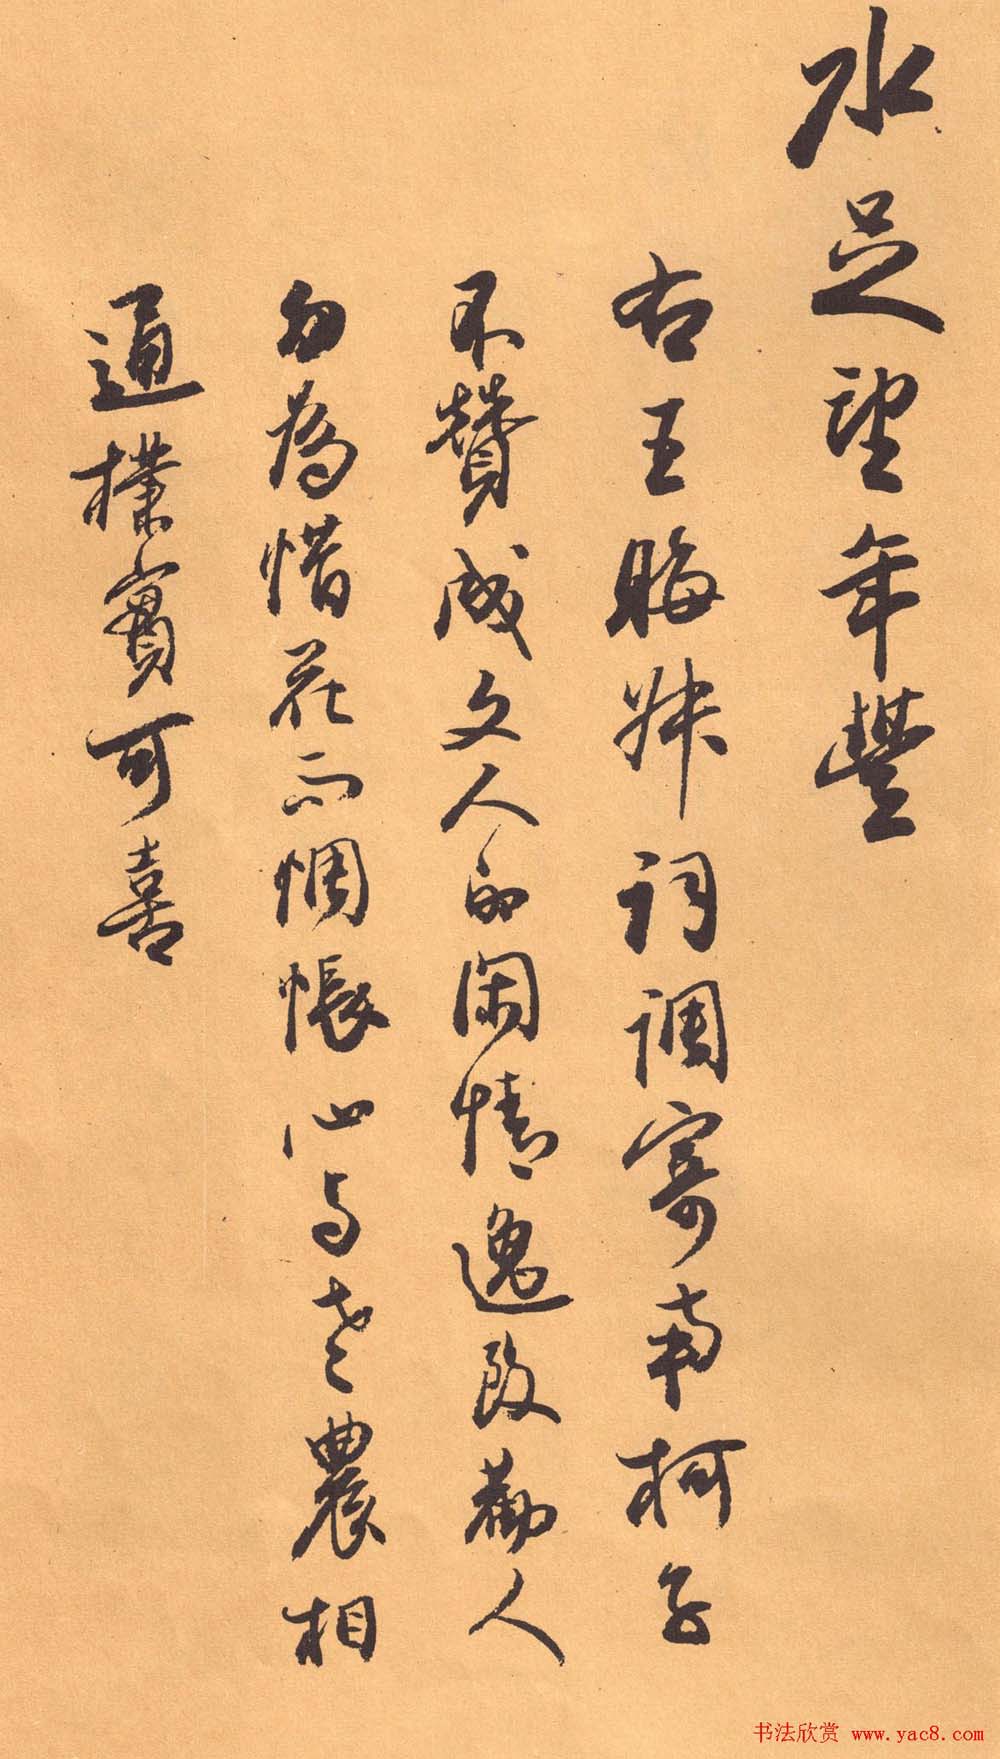 水足望年豐
右王晦叔词调寄南柯子
不贊成文人的闲情逸致勸人
勿為惜花而惆悵心与老農相
通樸實可喜
书法欣赏 www.yac8.com